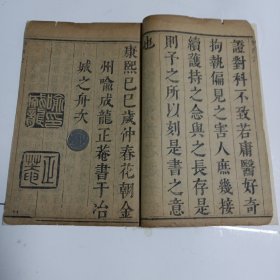 證對科不致若庸醫好奇
拘執偏見之害人庶幾接
續護持之念與之長存是
則予之所以刻是書之意
也
康熙己巳歲沖春花朝金
州喻成龍正菴書于冶
城之舟次
正菴